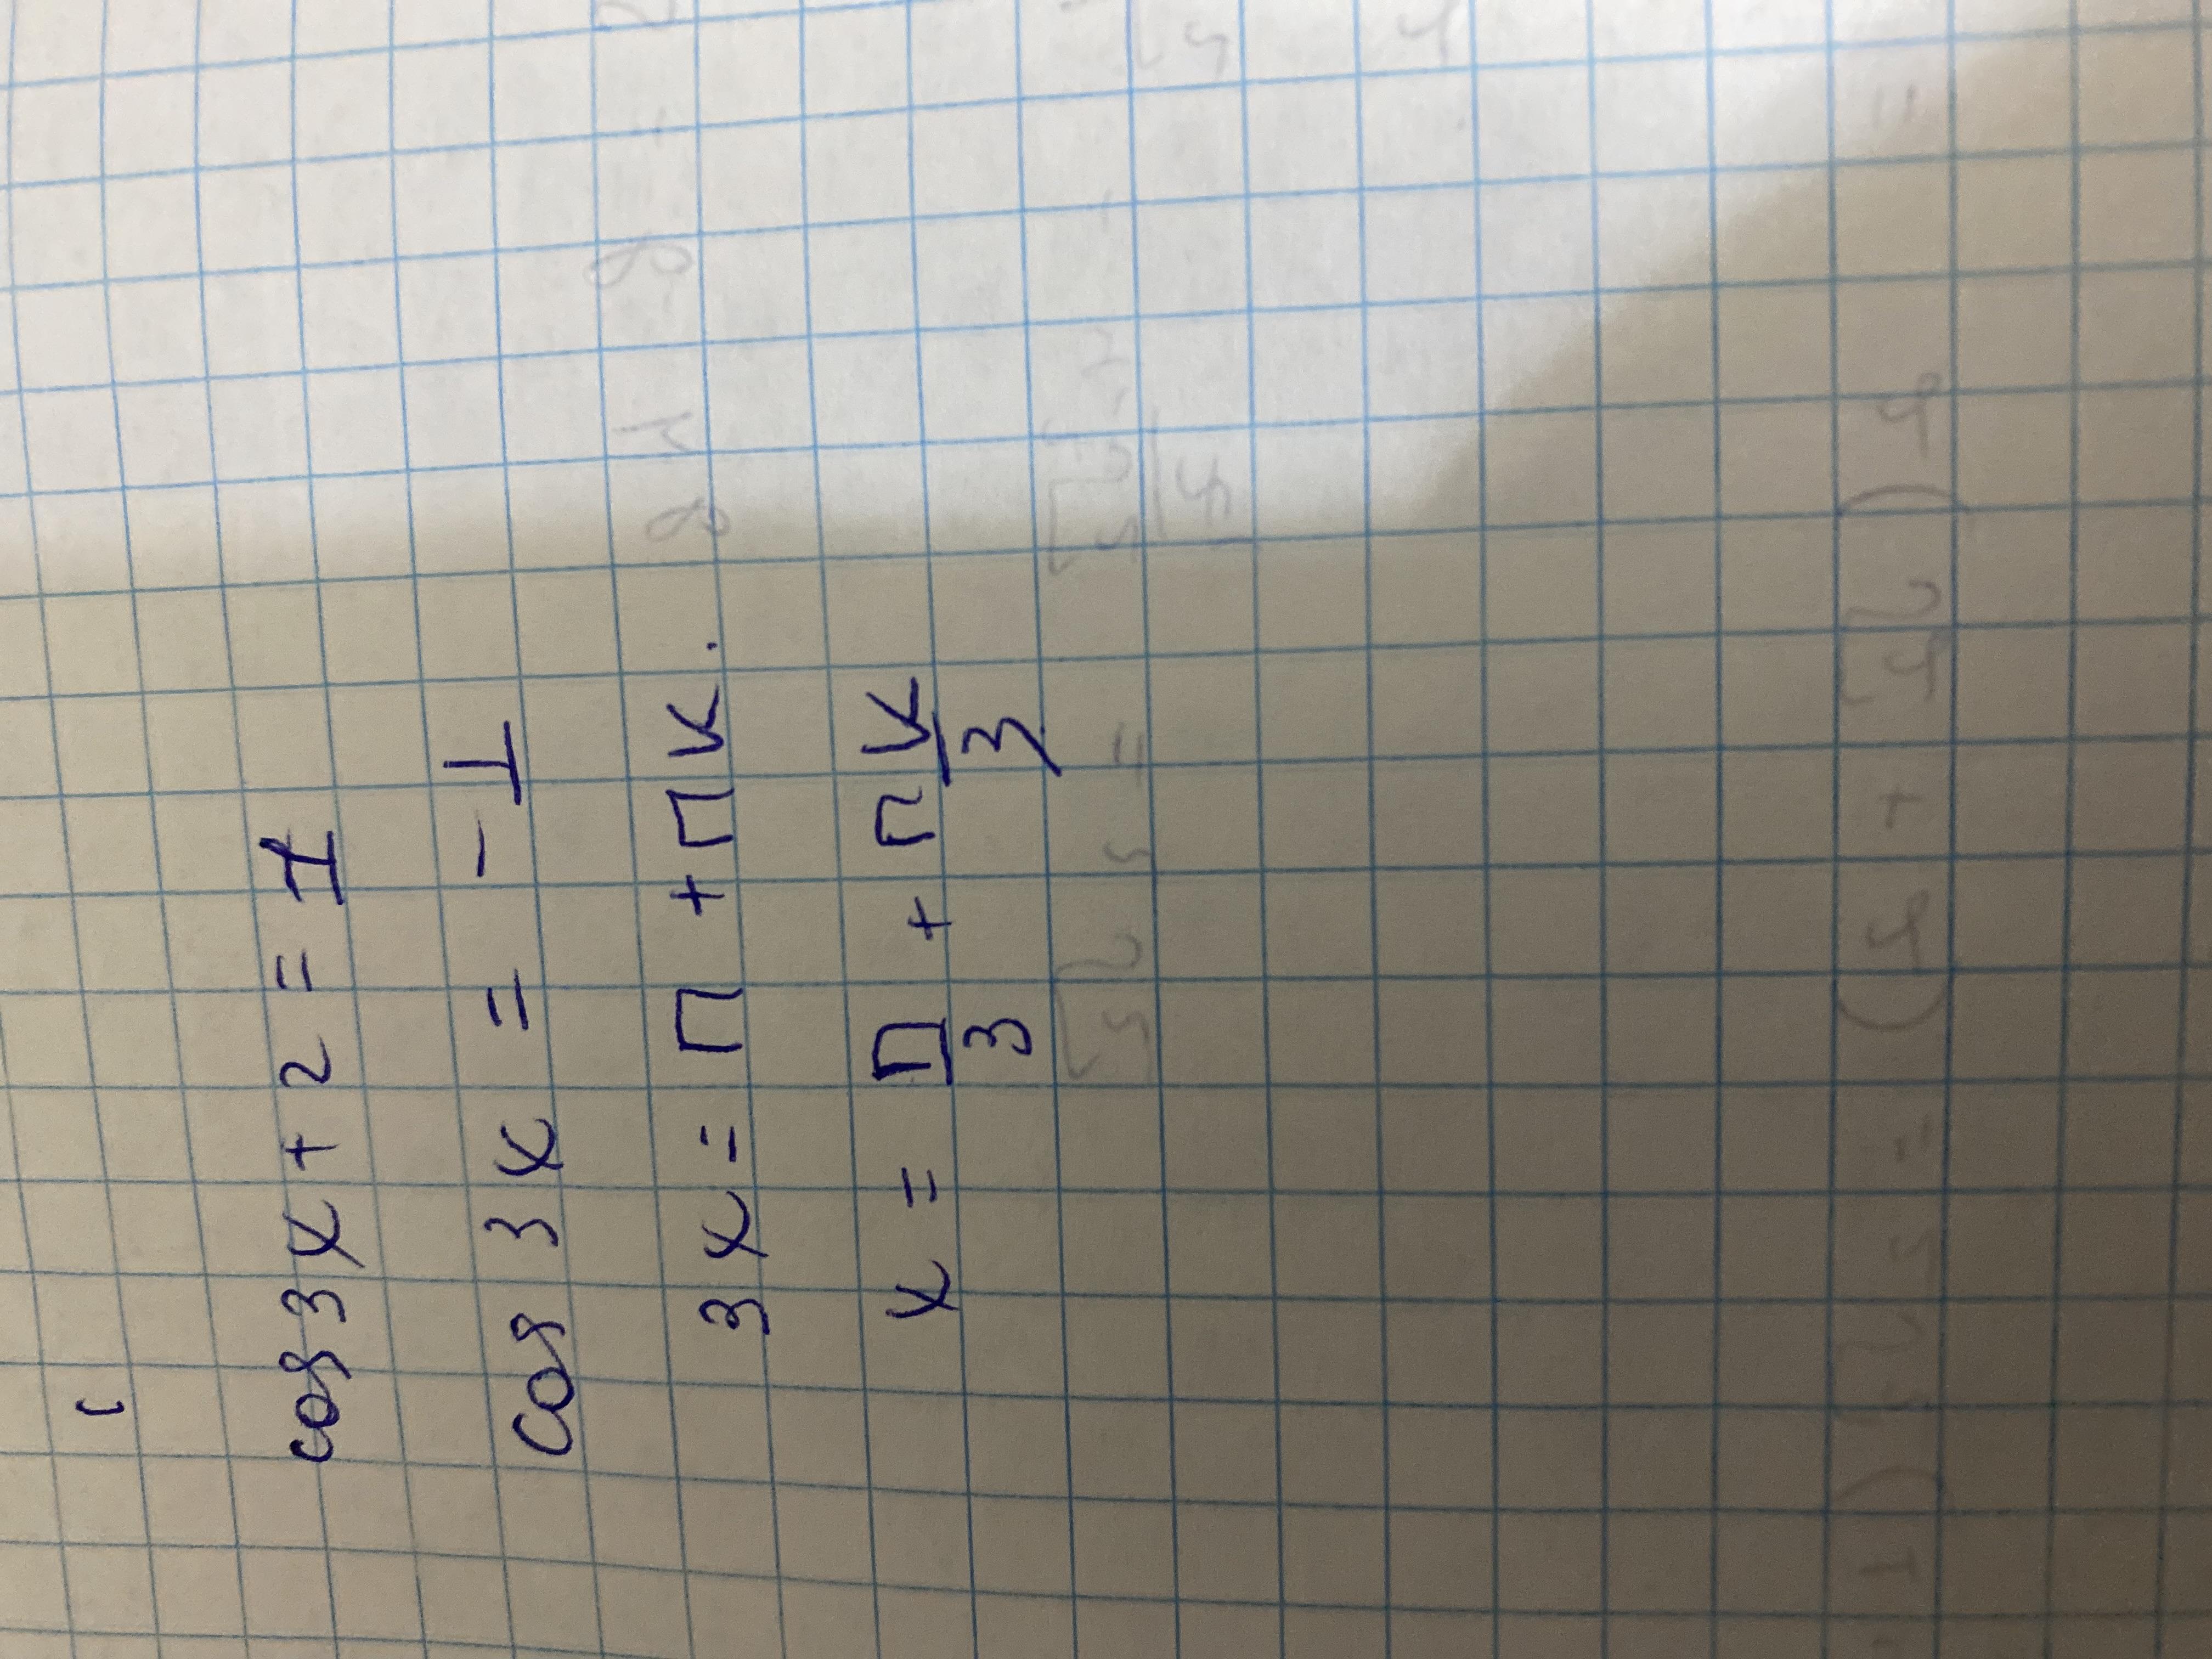 cos 3x + 2 = 1
cos 3x = -1
3x = П + Пk.
x = П/3 + Пk/3